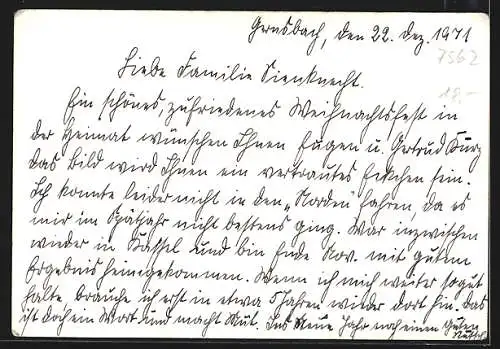 Gernsbach, den 22. Dez. 1971
7562
18.-
Liebe Familie Sienknecht.
Ein schönes, zufriedenes Weihnachtsfest in
der Heimat wünschen Ihnen Eugen u. Gertrud
das Bild wird Ihnen ein vertrautes Fleckchen sein.
Ich konnte leider nicht in den "Norden" fahren, da es
mir im Spätjahr nicht bestens ging. War inzwischen
wieder in Kassel und bin Ende Nov. mit gutem
Ergebnis heimgekommen. Wenn ich mich weiter so gut
halte, brauche ich erst in etwa 5 Jahren wieder dort hin. Das
ist doch ein Wort und macht Mut. Ins Neue Jahr noch einen Guten
Rutsch